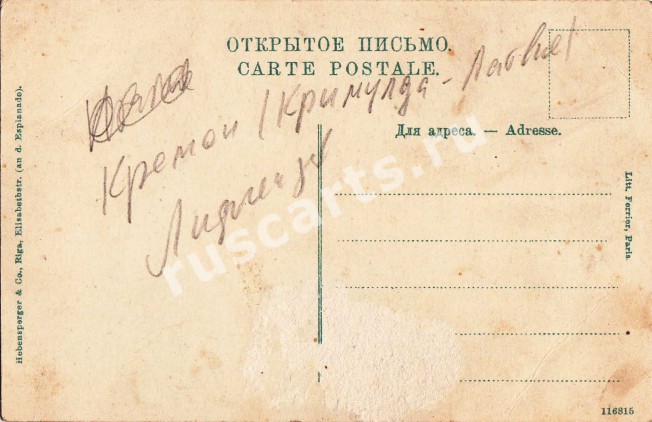 ОТКРЫТОЕ ПИСЬМО.
CARTE POSTALE.
Кремон (Кримулда - Латвия)
Лифлянд
Для адреса. — Adresse.
Hebensperger & Co., Riga, Elisabethstr. (an d. Esplanade).
Litt. Ferrier, Paris
ruscarts.ru
116815